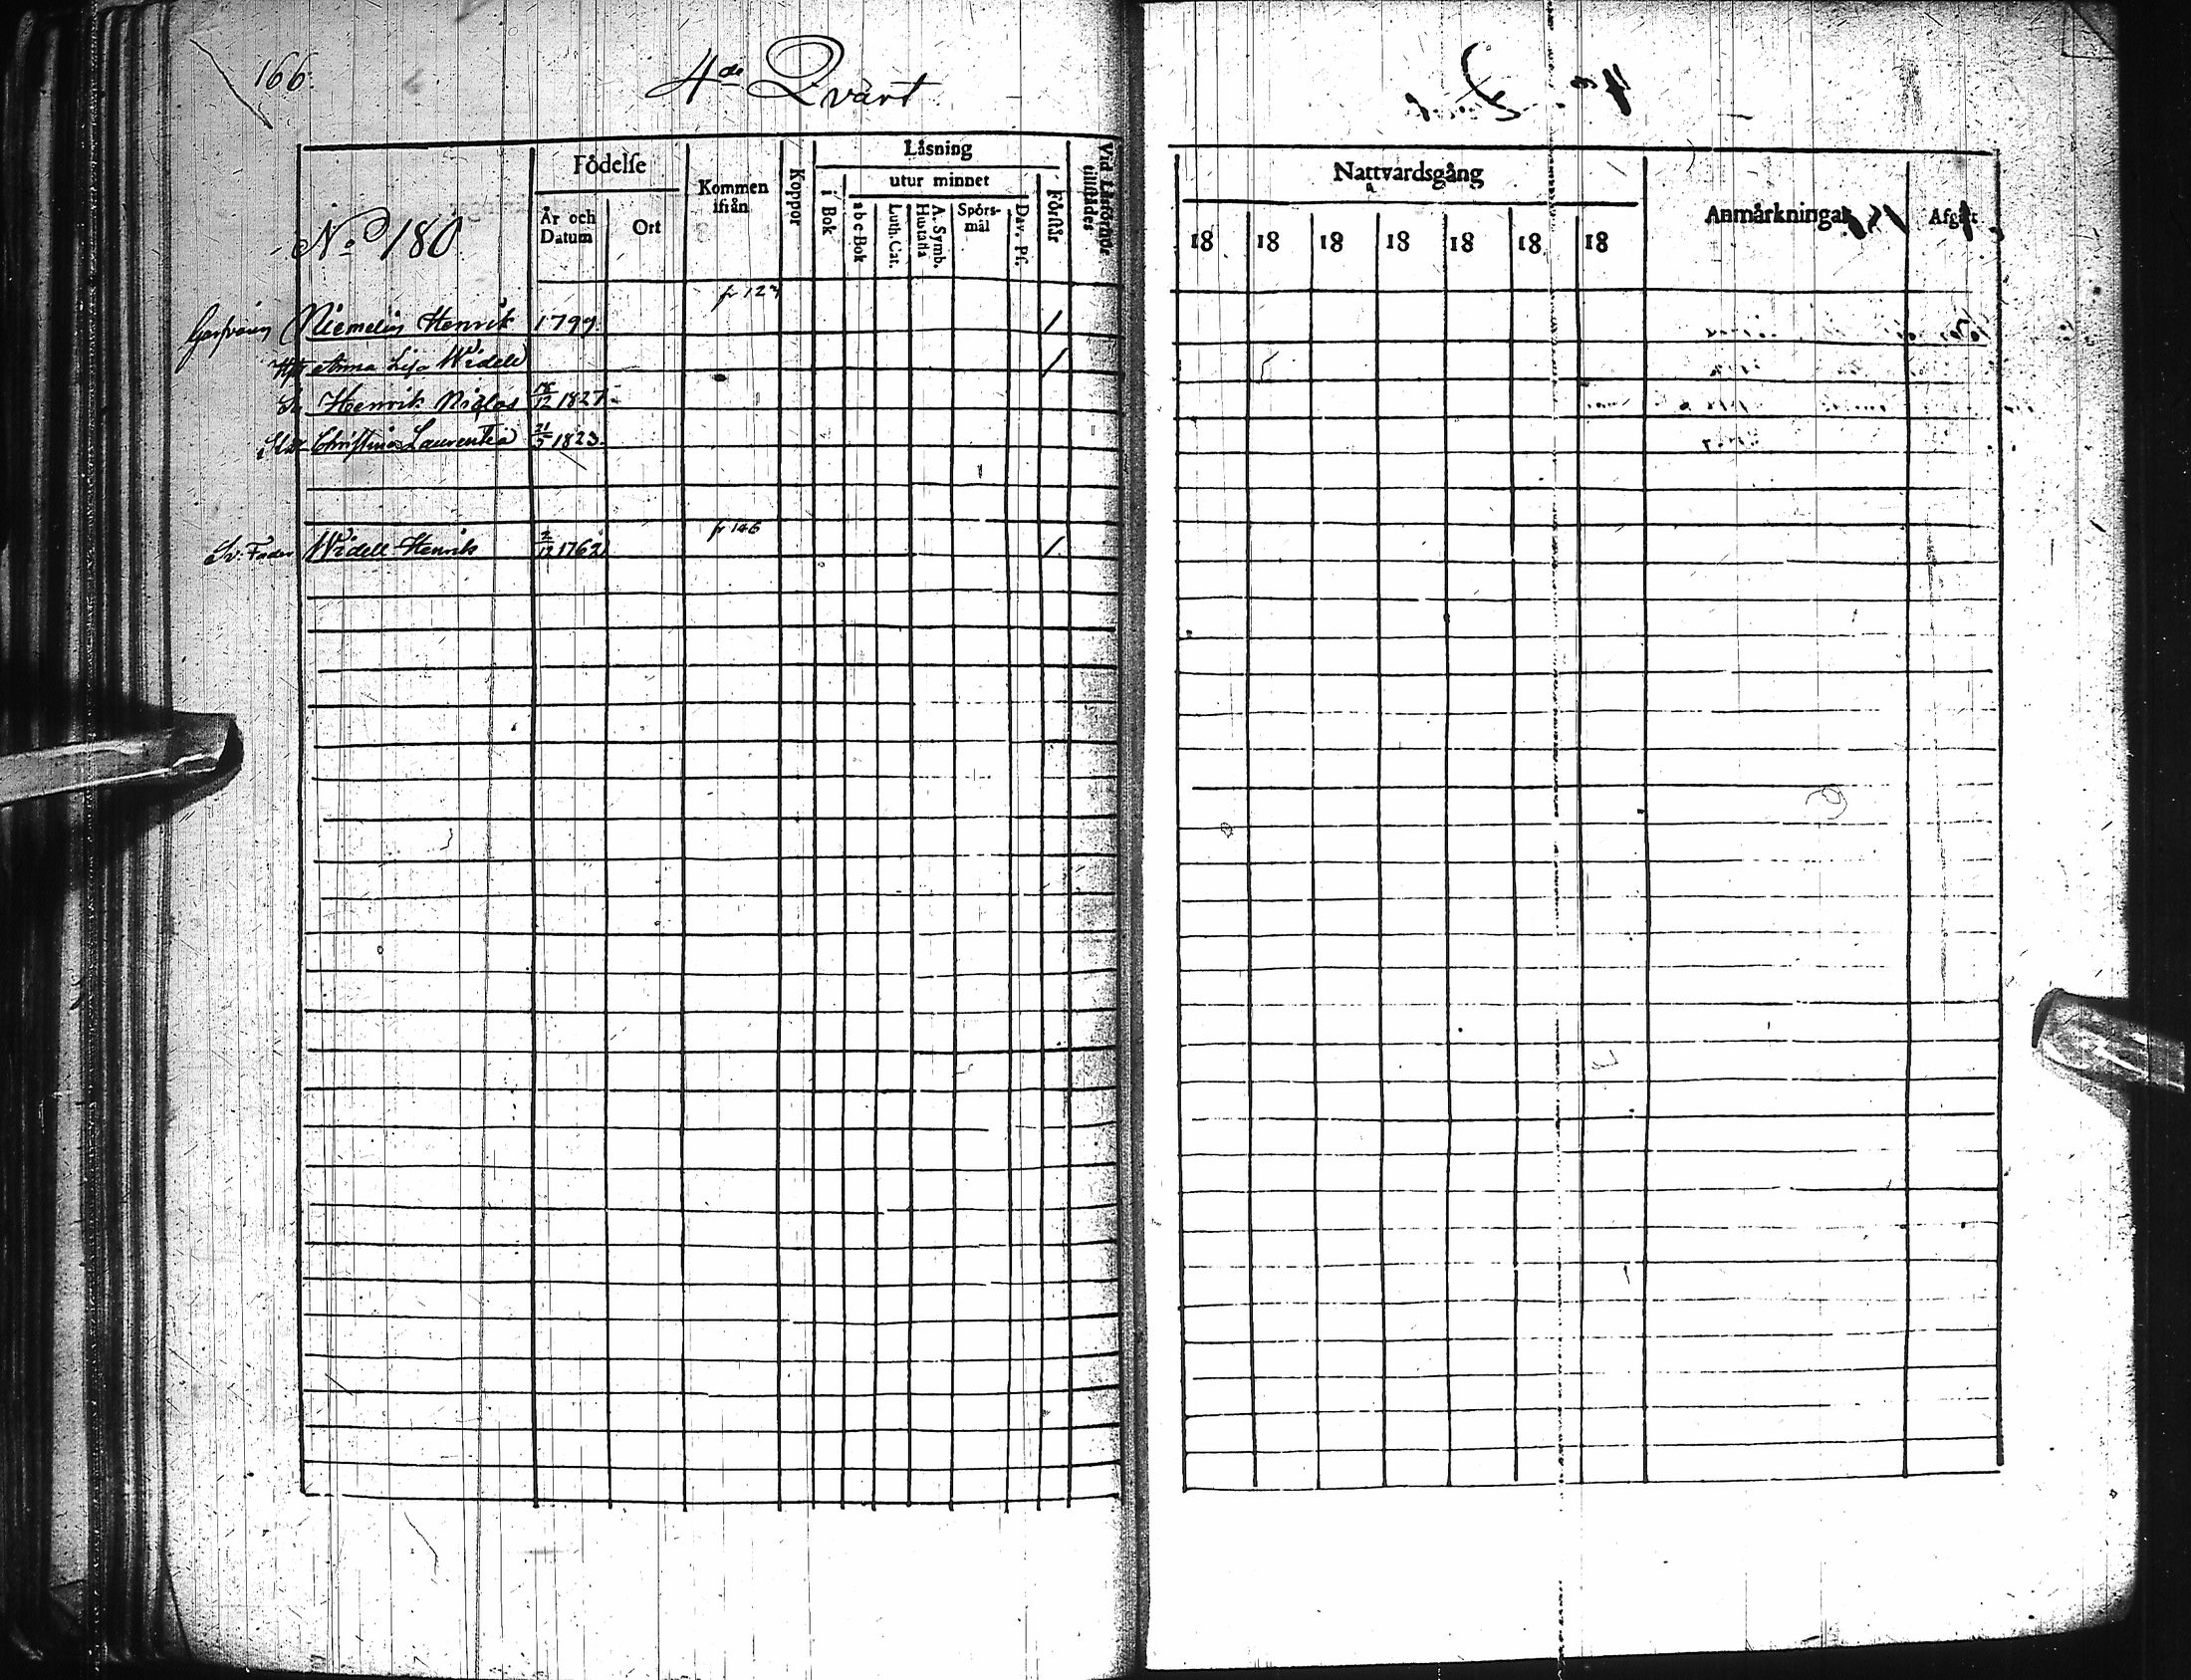 166.
4de Qvart
Födelse
Kommen
ifrån
Koppor
Läsning
utur minnet
i Bok
a b c Bok
Luth. Cat.
A. Symb.
Hustafla
Spörs-
mål
Dav. Ps.
Förstår
Vid Läsförhör
tillstädes
År och
Datum
Ort
No 180
fr 127
Niemelin Henrik 1799 /
Hst Anna Lisa Widell /
Sn Henrik Niclas 12 1827.
Christina Laurentia 21/5 1823.
fr 146
Sv: Fader Widell Henrik 2/12 1762 /
Nattvardsgång
Anmärkningar
Afgått
18 18 18 18 18 18 18